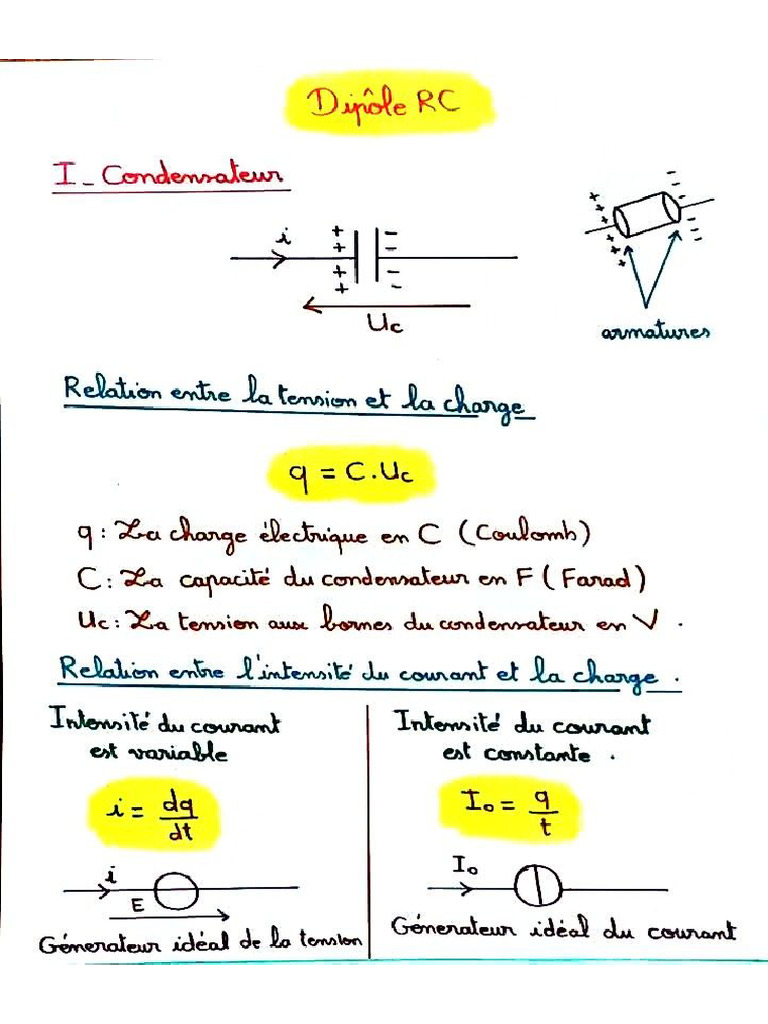 Dipôle RC
I_ Condensateur
i
+ -
+ -
+ -
+ -
Uc
+ + + + + + + +
- - - - - -
armatures
Relation entre la tension et la charge
q = C.Uc
q : La charge électrique en C (Coulomb)
C : La capacité du condensateur en F (Farad)
Uc : La tension aux bornes du condensateur en V .
Relation entre l'intensité du courant et la charge .
Intensité du courant
est variable
i = dq/dt
i
E
Génerateur idéal de la tension
Intensité du courant
est constante .
I₀ = q/t
I₀
Génerateur idéal du courant